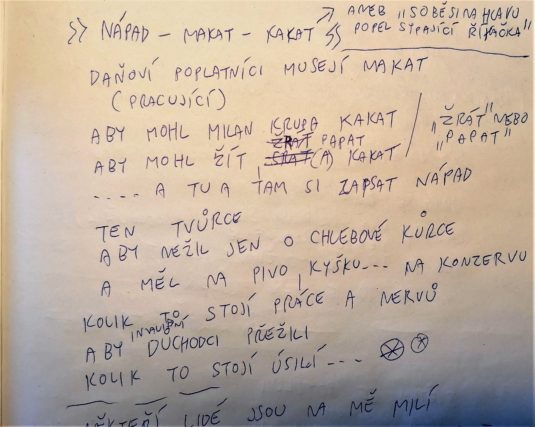 NÁPAD – MAKAT – KAKAT
ANEB „SOBĚ SI NA HLAVU
POPEL SYPAJÍCÍ ŘÍKAČKA"
DAŇOVÍ POPLATNÍCI MUSEJÍ MAKAT
(PRACUJÍCÍ)
ABY MOHL MILAN KRUPA KAKAT
ŽRÁT PAPAT
ABY MOHL ŽÍT, (A) KAKAT
„ŽRÁT" NEBO
„PAPAT"
.... A TU A TAM SI ZAPSAT NÁPAD
TEN TVŮRCE
ABY NEŽIL JEN O CHLEBOVÉ KŮRCE
A MĚL NA PIVO, KYŠKU... NA KONZERVU
KOLIK TO STOJÍ PRÁCE A NERVŮ
INVALIDNÍ
ABY DŮCHODCI PŘEŽILI
KOLIK TO STOJÍ ÚSILÍ....
NĚKTEŘÍ LIDÉ JSOU NA MĚ MILÍ